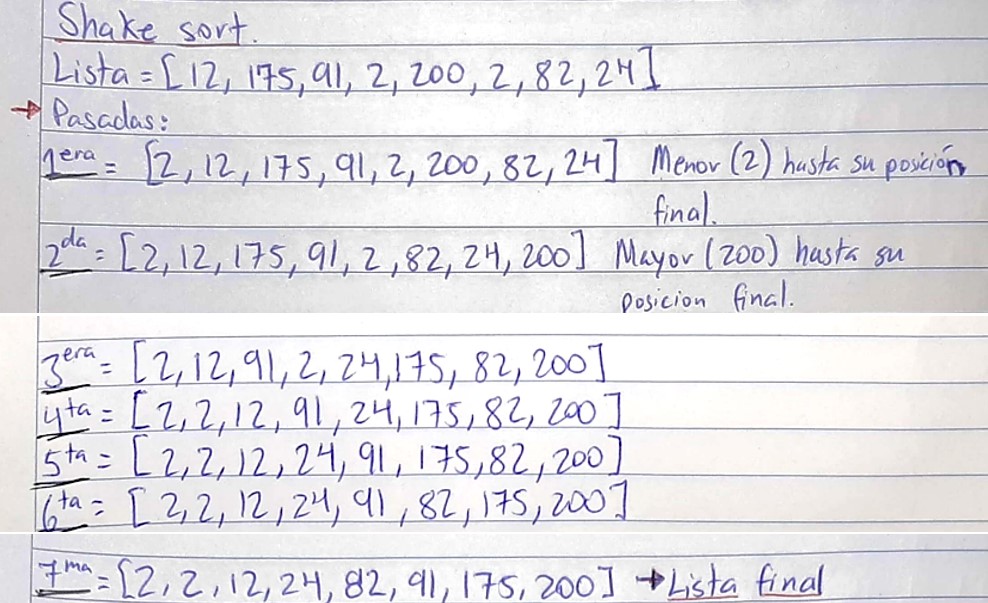 Shake sort.
Lista = [12, 175, 91, 2, 200, 2, 82, 24]
→ Pasadas:
1era = [2, 12, 175, 91, 2, 200, 82, 24] Menor (2) hasta su posición
final.
2da = [2, 12, 175, 91, 2, 82, 24, 200] Mayor (200) hasta su
posicion final.
3era = [2, 12, 91, 2, 24, 175, 82, 200]
4ta = [2, 2, 12, 91, 24, 175, 82, 200]
5ta = [2, 2, 12, 24, 91, 175, 82, 200]
6ta = [2, 2, 12, 24, 91, 82, 175, 200]
7ma = [2, 2, 12, 24, 82, 91, 175, 200] → Lista final